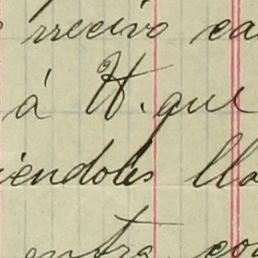 rrecivo ca
á H. que
iendoles lla
entra co